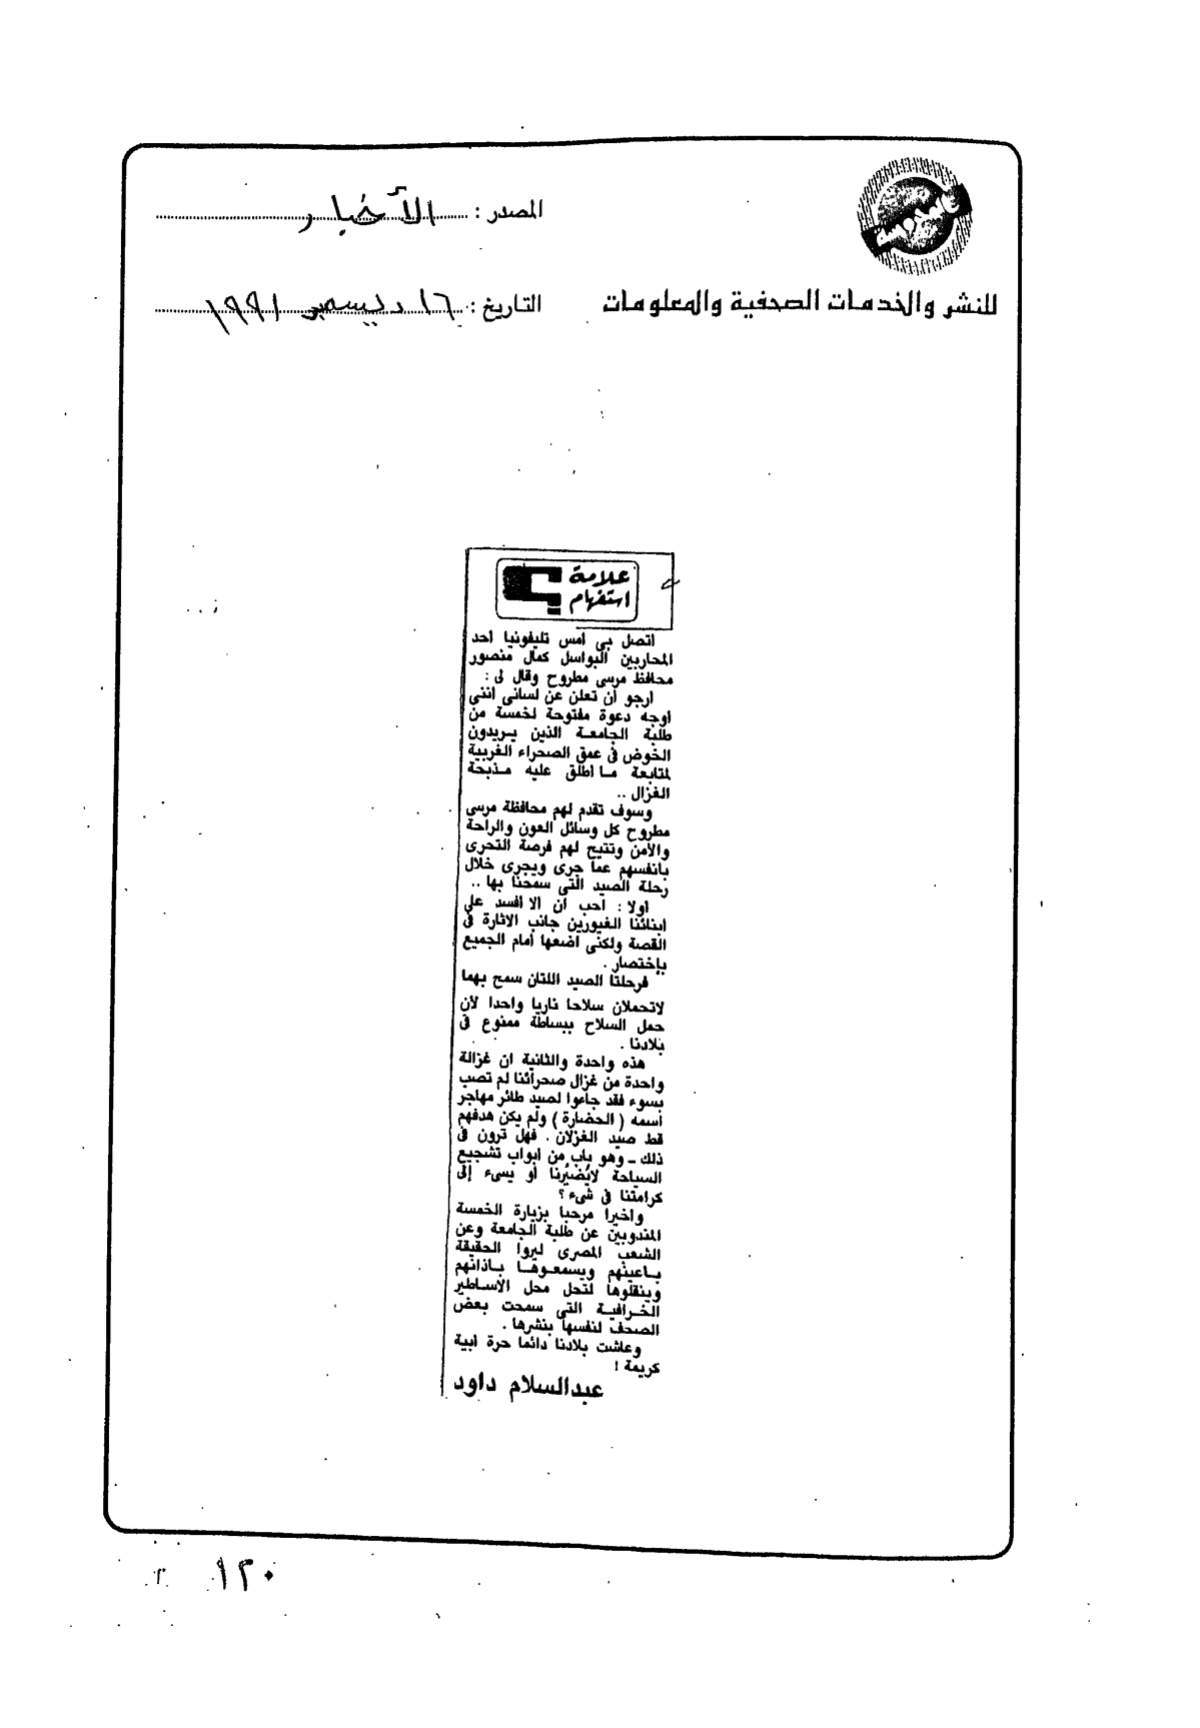 المصدر : الأخبار
للنشر والخدمات الصحفية والمعلومات
التاريخ : ١٦ ديسمبر ١٩٩١
علامة
استفهام
اتصل بى امس تليفونيا احد
المحاربين البواسل كمال منصور
محافظ مرسى مطروح وقال لى :
ارجو ان تعلن عن لسانى اننى
اوجه دعوة مفتوحة لخمسة من
طلبة الجامعة الذين يريدون
الخوض فى عمق الصحراء الغربية
لمتابعة ما اطلق عليه مذبحة
الغزال ..
وسوف تقدم لهم محافظة مرسى
مطروح كل وسائل العون والراحة
والأمن وتتيح لهم فرصة التحرى
بانفسهم عما جرى ويجرى خلال
رحلة الصيد التى سمحنا بها ..
اولا : احب ان الا افسد على
ابنائنا الغيورين جانب الاثارة فى
القصة ولكنى اضعها أمام الجميع
بإختصار .
فرحلتا الصيد اللتان سمح بهما
لاتحملان سلاحا ناريا واحدا لأن
حمل السلاح ببساطة ممنوع فى
بلادنا .
هذه واحدة والثانية ان غزالة
واحدة من غزال صحرائنا لم تصب
بسوء فقد جاءوا لصيد طائر مهاجر
اسمه ( الحضارة ) ولم يكن هدفهم
قط صيد الغزلان . فهل ترون فى
ذلك ـ وهو باب من ابواب تشجيع
السياحة لايُضيُرنا أو يسىء إلى
كرامتنا فى شىء ؟
واخيرا مرحبا بزيارة الخمسة
المندوبين عن طلبة الجامعة وعن
الشعب المصرى ليروا الحقيقة
باعينهم ويسمعوها باذانهم
وينقلوها لتحل محل الأساطير
الخرافية التى سمحت بعض
الصحف لنفسها بنشرها .
وعاشت بلادنا دائما حرة ابية
كريمة !
عبدالسلام داود
١٢٠